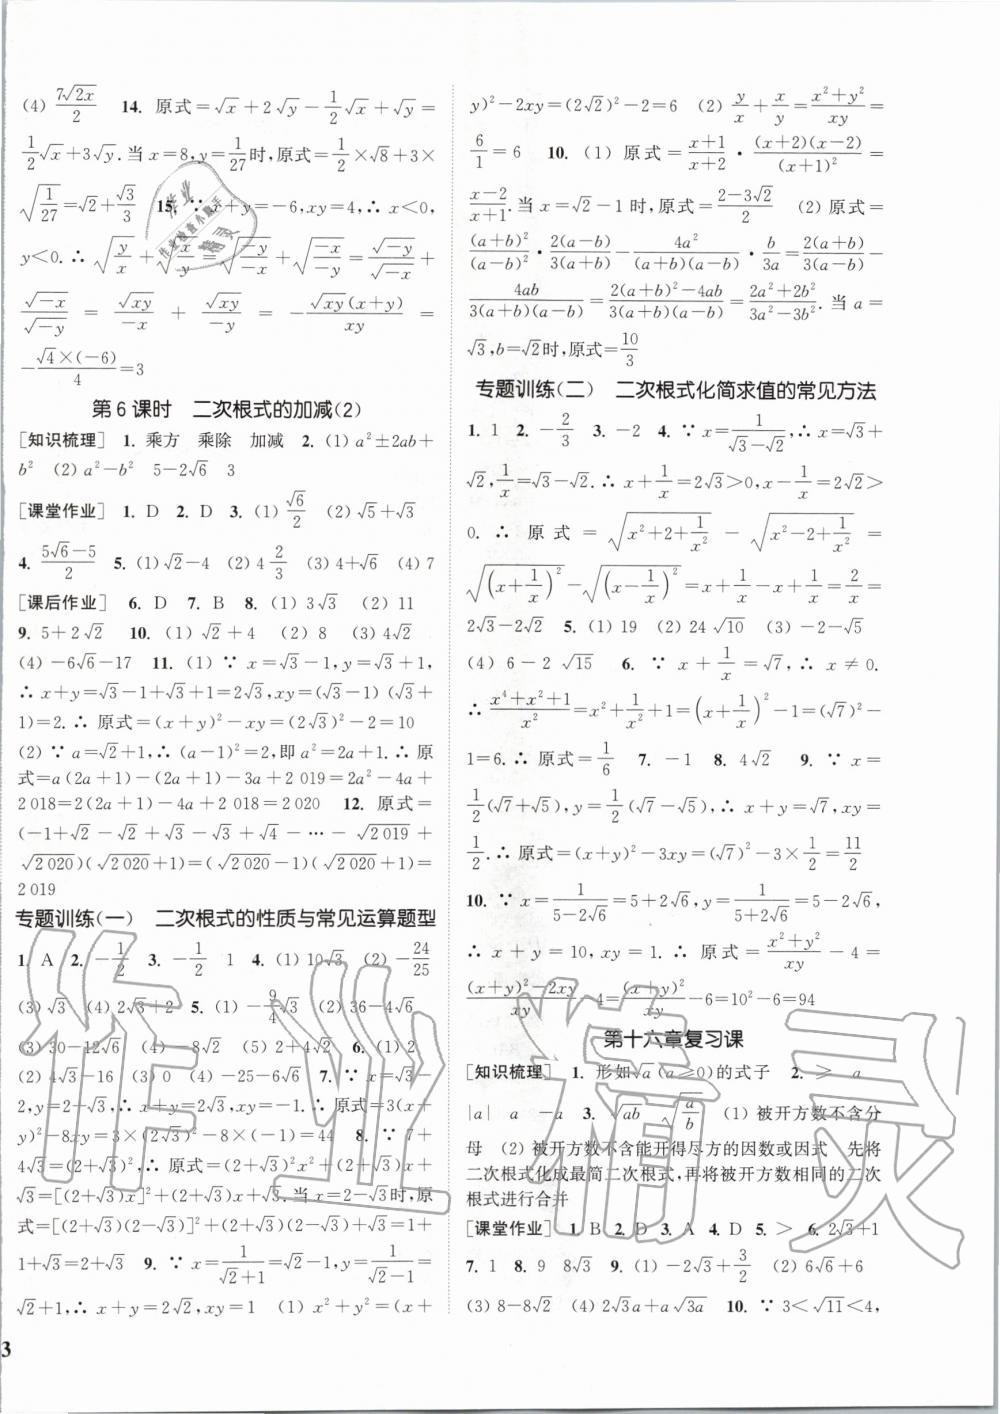 (4) 7√(2x)/2　14. 原式=√x+2√y-1/2√x+√y=
1/2√x+3√y.当 x=8,y=1/27时,原式=1/2×√8+3×
√(1/27)=√2+√3/3　15. ∵ x+y=-6,xy=4,∴ x<0,
y<0.∴ √(y/x)+√(x/y)=√(-y/-x)+√(-x/-y)=√-y/√-x+
√-x/√-y = √xy/-x + √xy/-y = -√xy(x+y)/xy =
-√4×(-6)/4=3
第6课时　二次根式的加减(2)
[知识梳理] 1. 乘方　乘除　加减　2. (1) a²±2ab+
b²　(2) a²-b²　5-2√6　3
[课堂作业] 1. D　2. D　3. (1) √6/2　(2) √5+√3
4. (5√6-5)/2　5. (1) √2-4　(2) 4 2/3　(3) 4+√6　(4) 7
[课后作业] 6. D　7. B　8. (1) 3√3　(2) 11
9. 5+2√2　10. (1) √2+4　(2) 8　(3) 4√2
(4) -6√6-17　11. (1) ∵ x=√3-1,y=√3+1,
∴ x+y=√3-1+√3+1=2√3,xy=(√3-1)(√3+
1)=2.∴ 原式=(x+y)²-xy=(2√3)²-2=10
(2) ∵ a=√2+1,∴ (a-1)²=2,即 a²=2a+1.∴ 原
式=a(2a+1)-(2a+1)-3a+2 019=2a²-4a+
2 018=2(2a+1)-4a+2 018=2 020　12. 原式=
(-1+√2-√2+√3-√3+√4-…-√2 019+
√2 020)(√2 020+1)=(√2 020-1)(√2 020+1)=
2 019
专题训练(一)　二次根式的性质与常见运算题型
1. A　2. -1/2　3. -1/2　1　4. (1) 10√3　(2) -24/25
(3) √3　(4) 2√3+2　5. (1) -9/4√3　(2) 36-4√6
(3) 30-12√6　(4) -8√2　(5) 2+4√2　6. (1) 2
(2) 4√3-16　(3) 0　(4) -25+10√6　7. ∵ x=
2+√3,y=2-√3,∴ x+y=4,xy=1.∴ 原式=3(x+
y)²-8xy=3×(2√3)²-8×(-1)=44　8. ∵ 7+
4√3=(2+√3)²,∴ 原式=(2+√3)²x²+(2+√3)x+
√3=[(2+√3)x]²+(2+√3)x+√3.当 x=2-√3时,原
式=[(2+√3)(2-√3)]²+(2+√3)(2-√3)+√3=1+
1+√3=2+√3　9. ∵ x=1/(√2+1)=√2-1,y=1/(√2-1)=
√2+1,∴ x+y=2√2,xy=1　(1) x²+y²=(x+
3
y)²-2xy=(2√2)²-2=6　(2) y/x+x/y=(x²+y²)/xy=
6/1=6　10. (1) 原式=(x+1)/(x+2)·(x+2)(x-2)/(x+1)²=
(x-2)/(x+1).当 x=√2-1时,原式=(2-3√2)/2　(2) 原式=
(a+b)²/(a-b)²·2(a-b)/3(a+b)-4a²/(a+b)(a-b)·b/3a=2(a+b)/3(a-b)-
4ab/3(a+b)(a-b)=(2(a+b)²-4ab)/3(a+b)(a-b)=(2a²+2b²)/(3a²-3b²).当 a=
√3,b=√2时,原式=10/3
专题训练(二)　二次根式化简求值的常见方法
1. 1　2. -2/3　3. -2　4. ∵ x=1/(√3-√2),∴ x=√3+
√2,1/x=√3-√2.∴ x+1/x=2√3>0,x-1/x=2√2>
0.∴ 原式=√(x²+2+1/x²)-√(x²-2+1/x²)=
√(x+1/x)²-√(x-1/x)²=x+1/x-x+1/x=2/x=
2√3-2√2　5. (1) 19　(2) 24√10　(3) -2-√5
(4) 6-2√15　6. ∵ x+1/x=√7,∴ x≠0.
∴ (x⁴+x²+1)/x²=x²+1/x²+1=(x+1/x)²-1=(√7)²-
1=6.∴ 原式=1/6　7. -1　8. 4√2　9. ∵ x=
1/2(√7+√5),y=1/2(√7-√5),∴ x+y=√7,xy=
1/2.∴ 原式=(x+y)²-3xy=(√7)²-3×1/2=11/2
10. ∵ x=1/(5-2√6)=5+2√6,y=1/(5+2√6)=5-2√6,
∴ x+y=10,xy=1.∴ 原式=(x²+y²)/xy-4=
((x+y)²-2xy)/xy-4=(x+y)²/xy-6=10²-6=94
第十六章复习课
[知识梳理] 1. 形如√a(a≥0)的式子　2. ≥　a
|a|　a　-a　3. √ab　√(a/b)　(1) 被开方数不含分
母　(2) 被开方数不含能开得尽方的因数或因式　先将
二次根式化成最简二次根式,再将被开方数相同的二次
根式进行合并
[课堂作业] 1. B　2. D　3. A　4. D　5. >　6. 2√3+1
7. 1　8. 9　8√3　9. (1) -2√3+3/2　(2) 6√6+6
(3) 8-8√2　(4) 2√3a+a√3a　10. ∵ 3<√11<4,
作业精灵